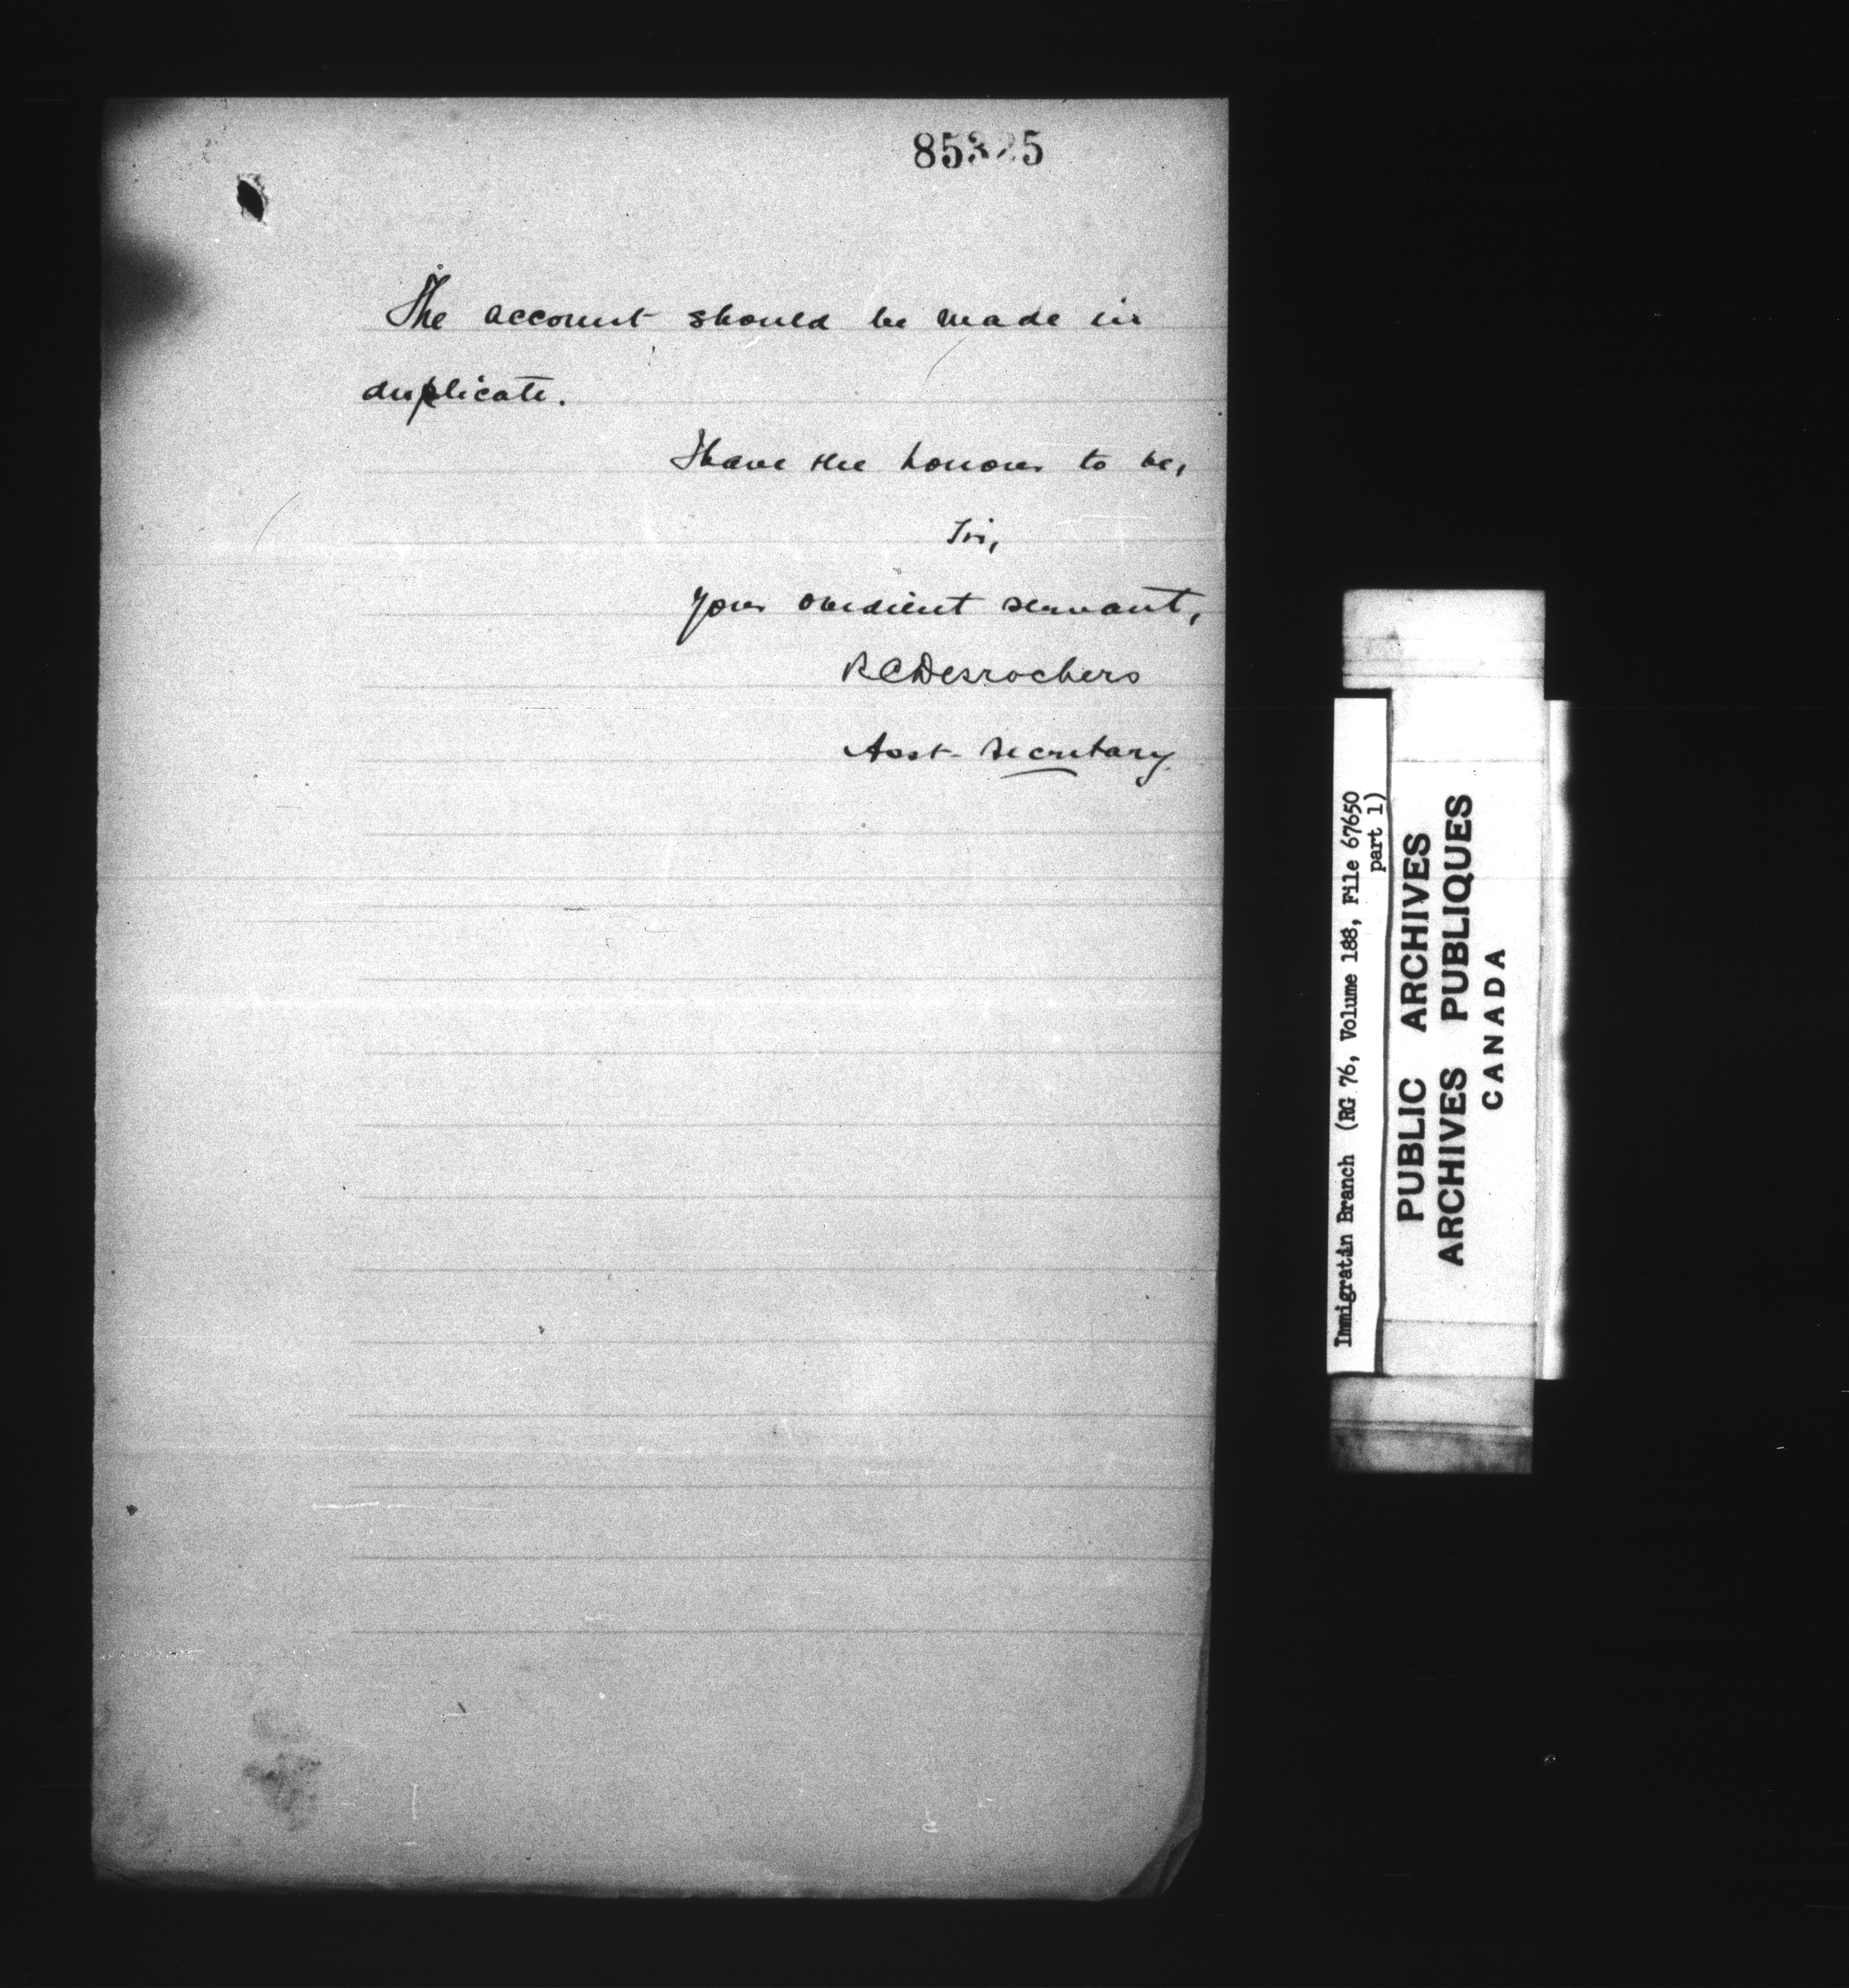 85325
The account should be made in
duplicate.
I have the honour to be,
Sir,
your obedient servant,
RCDesrochers
Asst- Secretary
Immigratin Branch (RG 76, Volume 188, File 67650
part 1)
PUBLIC ARCHIVES
ARCHIVES PUBLIQUES
CANADA